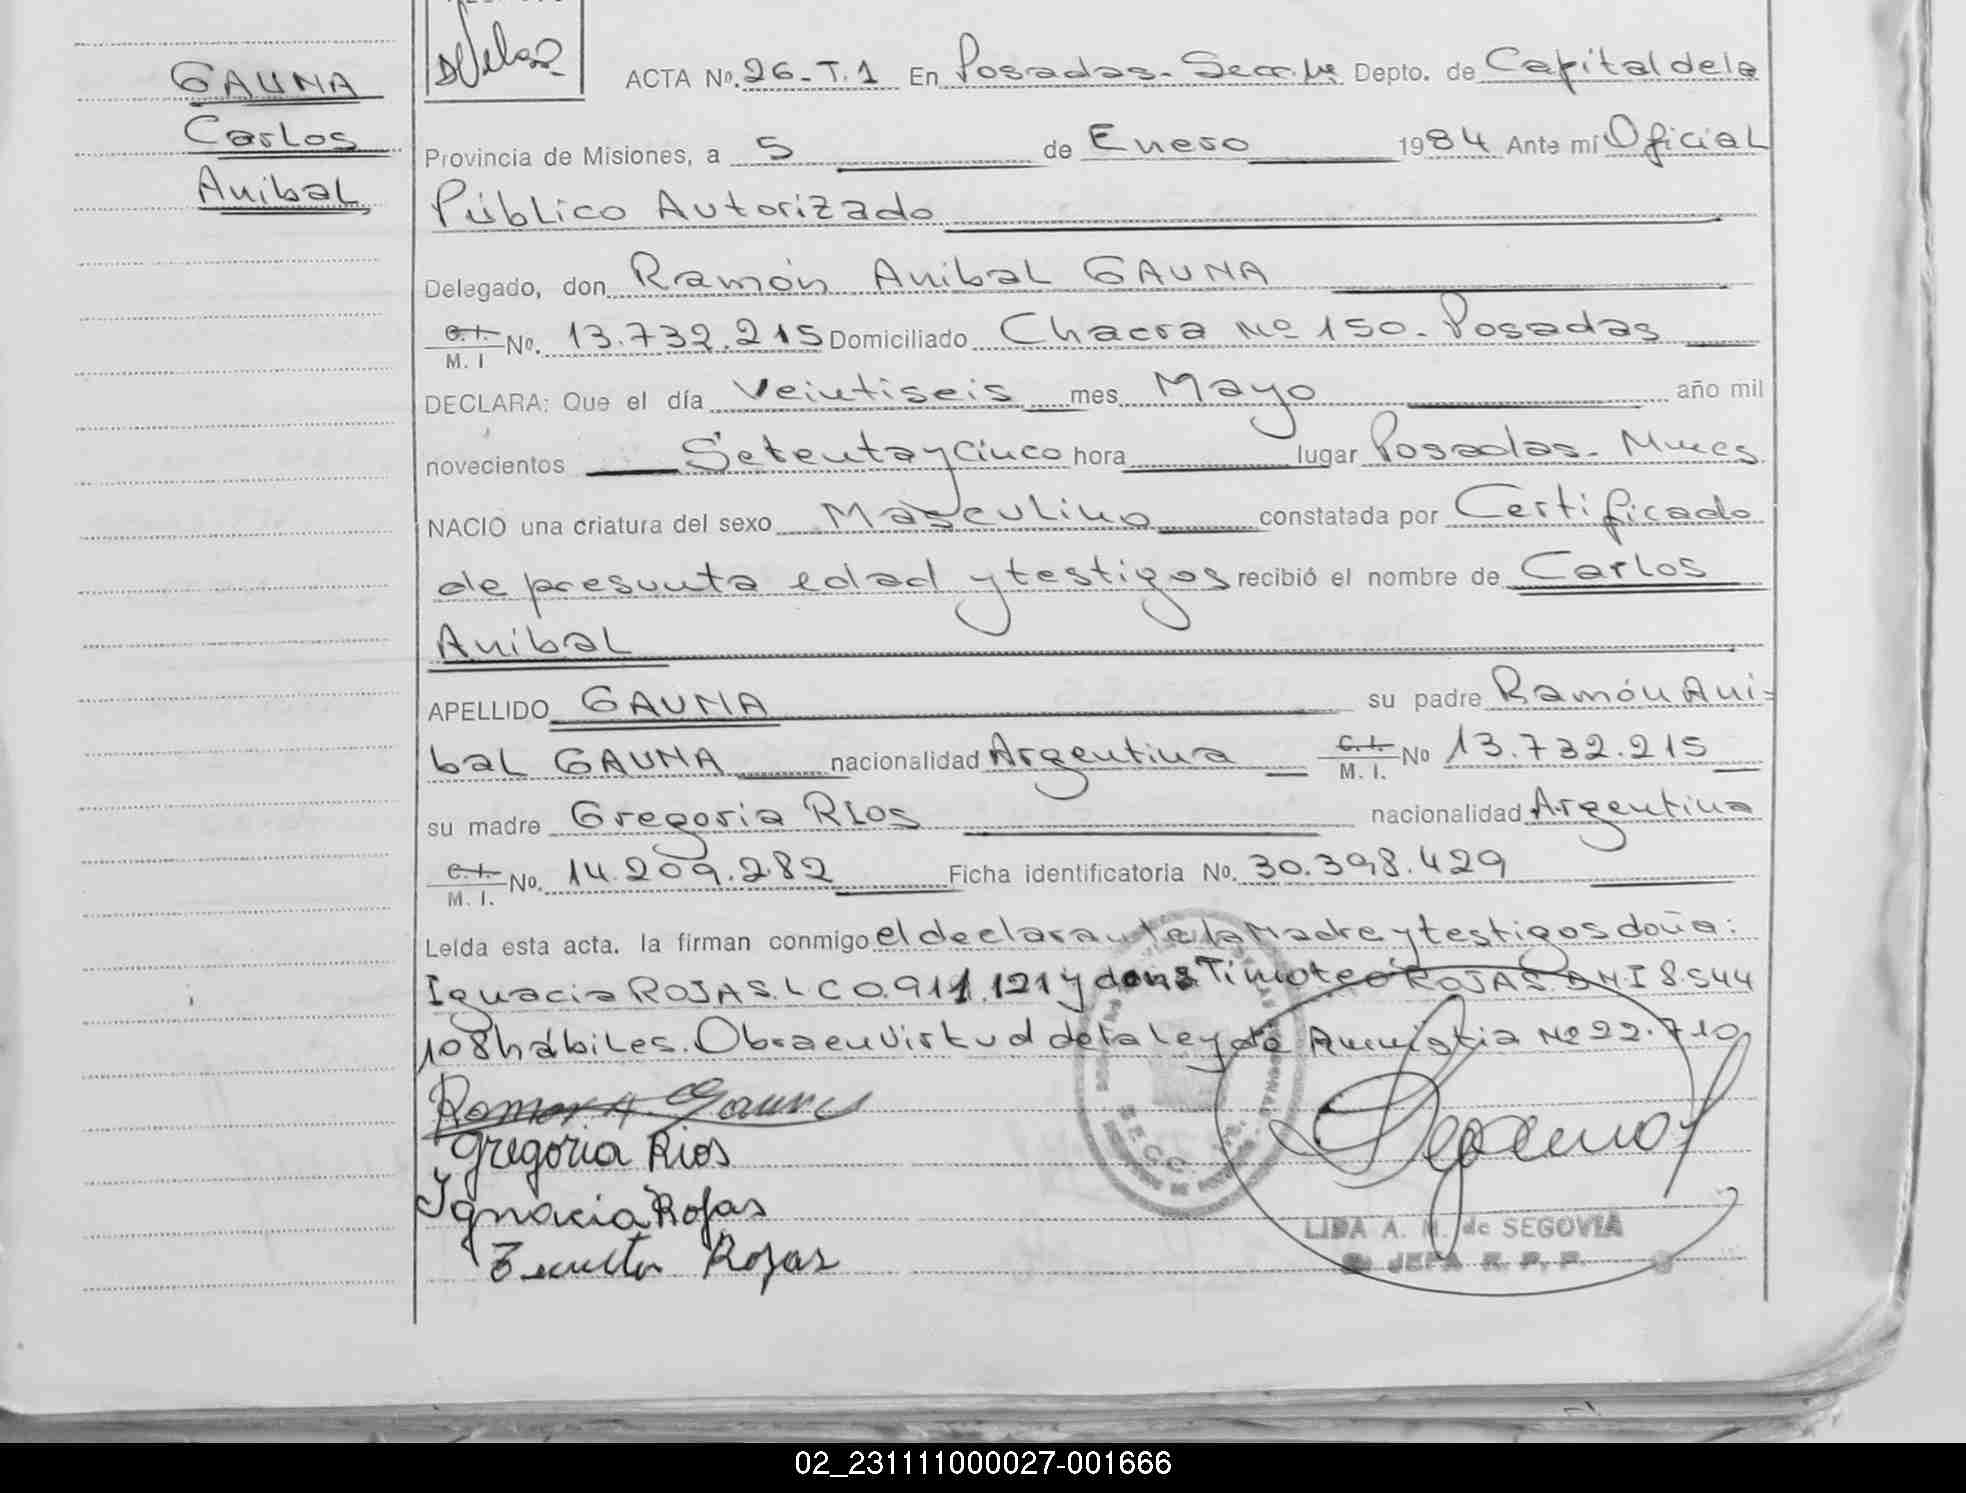 GAUNA
Carlos
Anibal,
ACTA Nº. 26-T.1 En Posadas- Secc. Depto. de Capital de la
Provincia de Misiones, a 5 de Enero 1984 Ante mí Oficial
Público Autorizado
Delegado, don Ramón Anibal GAUNA
C.I. / M. I Nº. 13.732.215 Domiciliado Chacra Nº 150. Posadas
DECLARA: Que el día Veintiseis mes Mayo año mil
novecientos Setenta y Cinco hora lugar Posadas-
NACIO una criatura del sexo Masculino constatada por Certificado
de presunta edad y testigos recibió el nombre de Carlos
Anibal
APELLIDO GAUNA su padre Ramón Ani=
bal GAUNA nacionalidad Argentina C.I. / M. I. Nº 13.732.215
su madre Gregoria RIOS nacionalidad Argentina
C.I. / M. I. Nº. 14.209.282 Ficha identificatoria Nº. 30.398.429
Leída esta acta. la firman conmigo el declarante la Madre y testigos doña:
Ignacia ROJAS. L C 0.911.121 y don Timoteo ROJAS. DNI 8.544
108 hábiles. Obra en Virtud de la Ley de Amnistia Nº 22.710
Ramon A. Gauna
Gregoria Rios
Ignacia Rojas
Rojas
LIDA A. M. de SEGOVIA
JEFA R. P. P.
SECC.
02_231111000027-001666